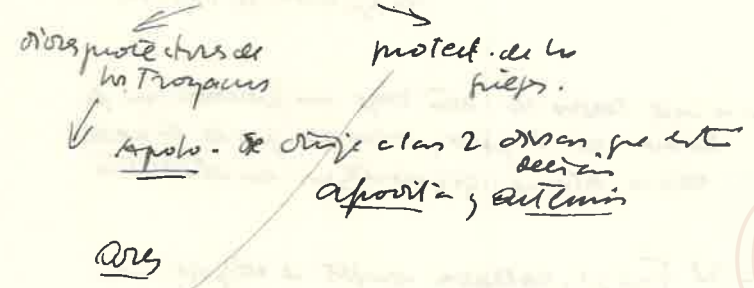 dioses protectores de
los Troyanos
protect. de los
griegos.
Apolo. Se dirige a las 2 diosas que está
afrodita y artemis
ares